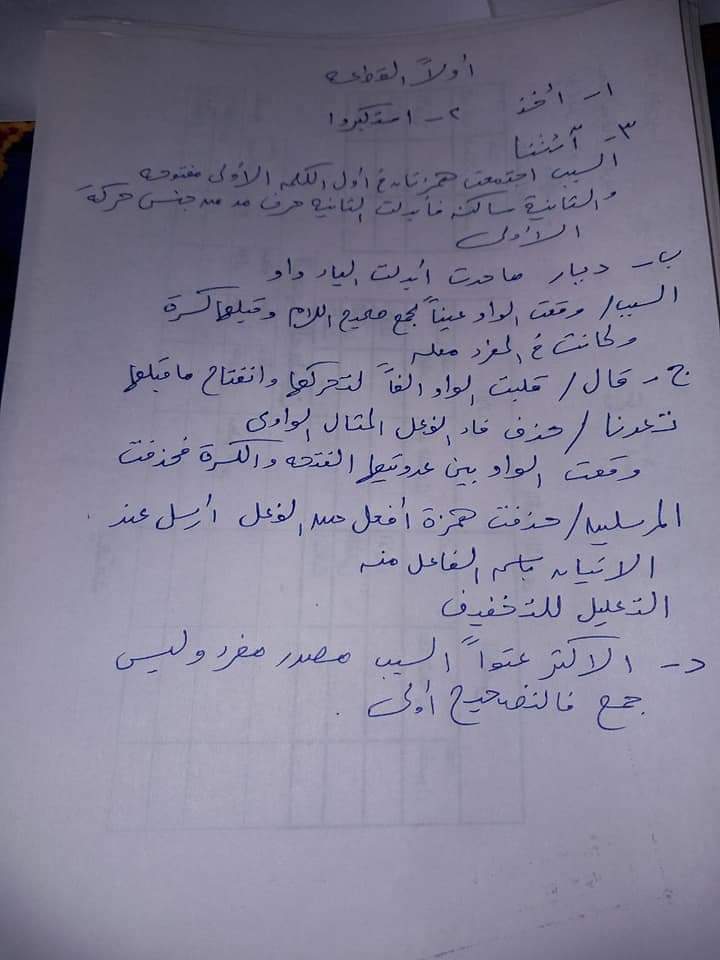 أولاً القطعه
١- أخذ ٢- استكبروا
٣- آئتنا
السبب اجتمعت همزتان في أول الكلمه الأولى مفتوحه
والثانية ساكنه فأبدلت الثانيه حرف مد من جنس حركة
الأولى
ب- ديار حدت أبدلت الياء واو
السبب/ وقعت الواو عيناً لجمع صحيح اللام وقبلها كسرة
وكانت في المفرد معله
ج- قال/ قلبت الواو الفاً لتحركها وانفتاح ما قبلها
تعدنا/ حذف فاء الفعل المثال الواوى
وقعت الواو بين عدوتيها الفتحه والكسرة فحذفت
المرسلين/ حذفت همزة أفعل من الفعل أرسل عند
الاتيان باسم الفاعل منه
التعليل للتخفيف
د- الاكثر عتواً السبب مصدر مفرد وليس
جمع فالتصحيح أولى.